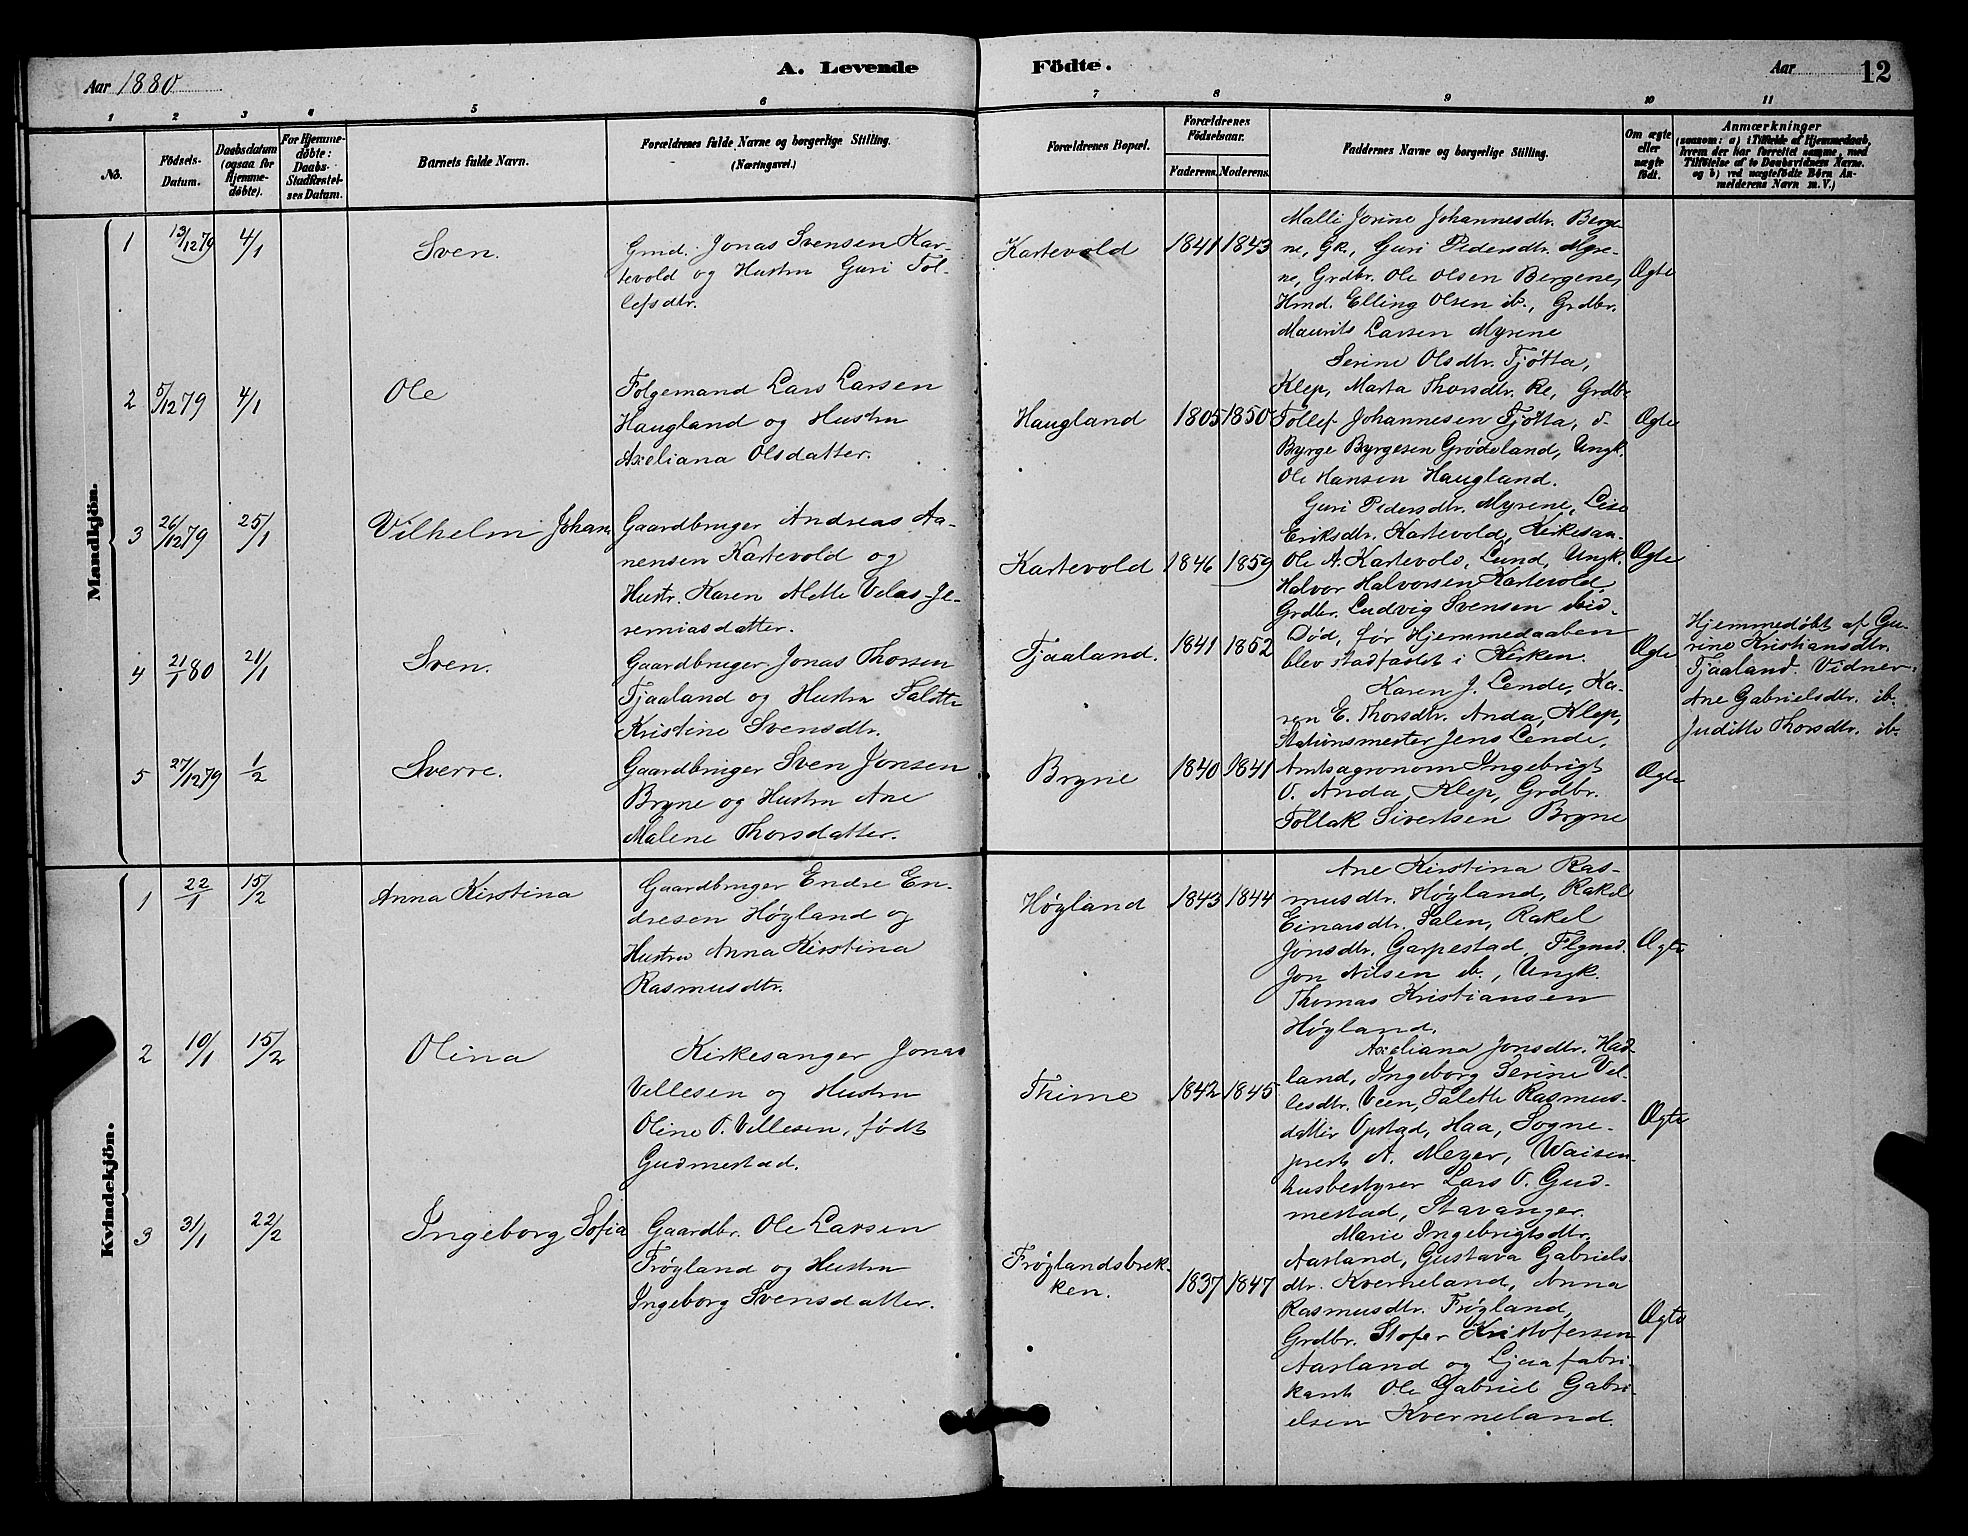 Aar 1880
A. Levende
Födte.
Aar
12
1 2 3 4 5 6 7 8 9 10 11
No.
Födsels-
Datum.
Daabsdatum
(ogsaa for
Hjemme-
döbte).
For Hjemme-
döbte:
Daabs-
Stadfæstel-
ses Datum.
Barnets fulde Navn.
Forældrenes fulde Navne og borgerlige Stilling.
(Næringsvei.)
Forældrenes Bopæl.
Forældrenes
Födselsaar.
Faderens. Moderens.
Faddernes Navne og borgerlige Stilling.
Om ægte
eller
uægte
födt.
Anmærkninger
(saasom: a) i Tilfælde af Hjemmedaab,
hvem der har forrettet samme, med
Tilföielse af to Daabsvidners Navne.
og b) ved uægtefödte Börn An-
melderens Navn m. V.)
Mandkjön.
1 13/12 79 4/1 Sven.
Grmd. Jonas Svensen Kar-
tevold og Hustru Guri Tol-
lefsdtr.
Kartevold 1841 1843
Malli Jorine Johannesdtr. Berge-
ne, Gk., Guri Pedersdtr. Myre-
ne, Grdbr. Ole Olsen Bergene,
Hmd. Elling Olsen ib., Grdbr.
Maurits Larsen Myrene
Ægte
2 5/12 79 4/1 Ole
Folgemand Lars Larsen
Haugland og Hustru
Axeliana Olsdatter.
Haugland 1805 1850
Serine Olsdtr. Tjøtta,
Klep, Marta Thorsdtr. Re, Grdbr
Tollef Johannesen Tjøtta, d.
Byrge Byrgesen Grødeland, Ungk.
Ole Hansen Haugland.
Ægte
3 26/12 79 25/1 Vilhelm Johan
Gaardbruger Andreas Aa-
nensen Kartevold og
Hustr. Karen Alette Velas Je-
remiasdatter.
Kartevold 1846 1859
Guri Pedersdtr. Myrene, Lise
Eriksdtr. Kartevold, Kirkesan-
Ole A. Kartevold, Lund, Ungk.
Halvor Halvorsen Kartevold,
Grdbr. Ludvig Svensen ibid.
Ægte
4 21/1 80 21/1 Sven.
Gaardbruger Jonas Thorsen
Tjaaland og Hustru Salette
Kristine Svensdtr.
Tjaaland. 1841 1852
Død, før Hjemmedaaben
blev stadfæstet i Kirken.
Ægte
Hjemmedöbt af Gu-
rine Kristiansdtr.
Tjaaland. Vidner
Ane Gabrielsdtr. ib.
Juditte Thorsdtr. ib.
5 27/12 79 1/2 Sverre.
Gaardbruger Sven Jonsen
Bryne og Hustru Ane
Malene Thorsdatter.
Bryne 1840 1841
Karen J. Lende, Ka-
ren E. Thorsdtr. Anda, Klep,
Stationsmester Jens Lende,
Amtsagronom Ingebrigt
O. Anda, Klep, Grdbr.
Tollak Sivertsen Bryne
Ægte
Kvindekjön.
1 22/1 15/2 Anna Kirstina
Gaardbruger Endre En-
dresen Høyland og
Hustru Anna Kirstina
Rasmusdtr.
Høyland 1843 1844
Ane Kirstina Ras-
musdtr. Høyland, Rakel
Einarsdtr. Salen, Rakel
Jonsdtr. Garpestad, Flgmd.
Jon Nilsen ib., Ungk.
Thomas Kristiansen
Høyland.
Ægte
2 10/1 15/2 Olina
Kirkesanger Jonas
Vellesen og Hustru
Oline O. Vellesen, født
Gudmestad.
Thime 1842 1845
Axeliana Jonsdtr. Had-
land, Ingeborg Serine Vel-
lesdtr. Veen, Talette Rasmus-
datter Opstad, Haa, Sogne-
prest A. Meyer, Waisen-
husbestyrer Lars O. Gud-
mestad, Stavanger.
Ægte
3 31/1 22/2 Ingeborg Sofia
Gaardbr. Ole Larsen
Frøyland og Hustru
Ingeborg Svensdatter.
Frøylandsbrek-
ken. 1837 1847
Marie Ingebrigtsdtr.
Aarland, Gustava Gabriels-
dtr. Kverneland, Anna
Rasmusdtr. Frøyland,
Grdbr. Stofer Kristofersen
Aarland og Ljaafabri-
kant Ole Gabriel Gabri-
elsen Kverneland.
Ægte